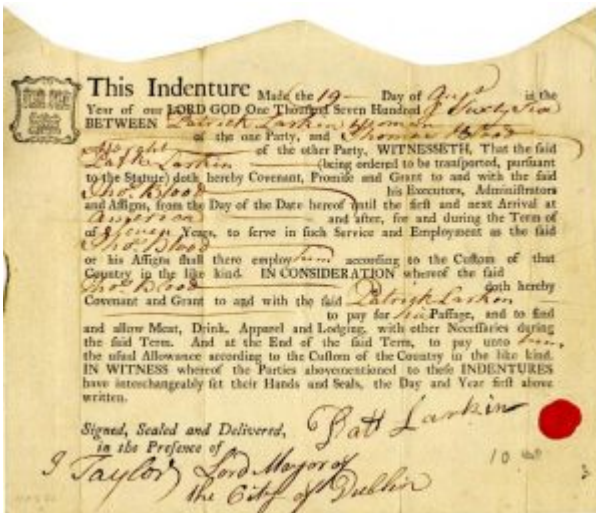 This Indenture Made the 19 Day of Augt in the
Year of our LORD GOD One Thousand Seven Hundred & Sixty Six
BETWEEN Patrick Larkin Yeoman
of the one Party, and Thomas Blood
of the other Party, WITNESSETH, That the said
Patk Larkin (being ordered to be transported, pursuant
to the Statute) doth hereby Covenant, Promise and Grant to and with the said
Thos. Blood his Executors, Administrators
and Assigns, from the Day of the Date hereof until the first and next Arrival at
America and after, for and during the Term of
of Seven Years, to serve in such Service and Employment as the said
Thos. Blood
or his Assigns shall there employ him according to the Custom of that
Country in the like kind. IN CONSIDERATION whereof the said
Thos. Blood doth hereby
Covenant and Grant to and with the said Patrick Larken
to pay for his Passage, and to find
and allow Meat, Drink, Apparel and Lodging, with other Necessaries during
the said Term. And at the End of the said Term, to pay unto him
the usual Allowance according to the Custom of the Country in the like kind.
IN WITNESS whereof the Parties abovementioned to these INDENTURES
have interchangeably set their Hands and Seals, the Day and Year first above
written.
Signed, Sealed and Delivered,
in the Presence of
Patt Larkin
J Taylor Lord Mayor of
the City of Dublin
10